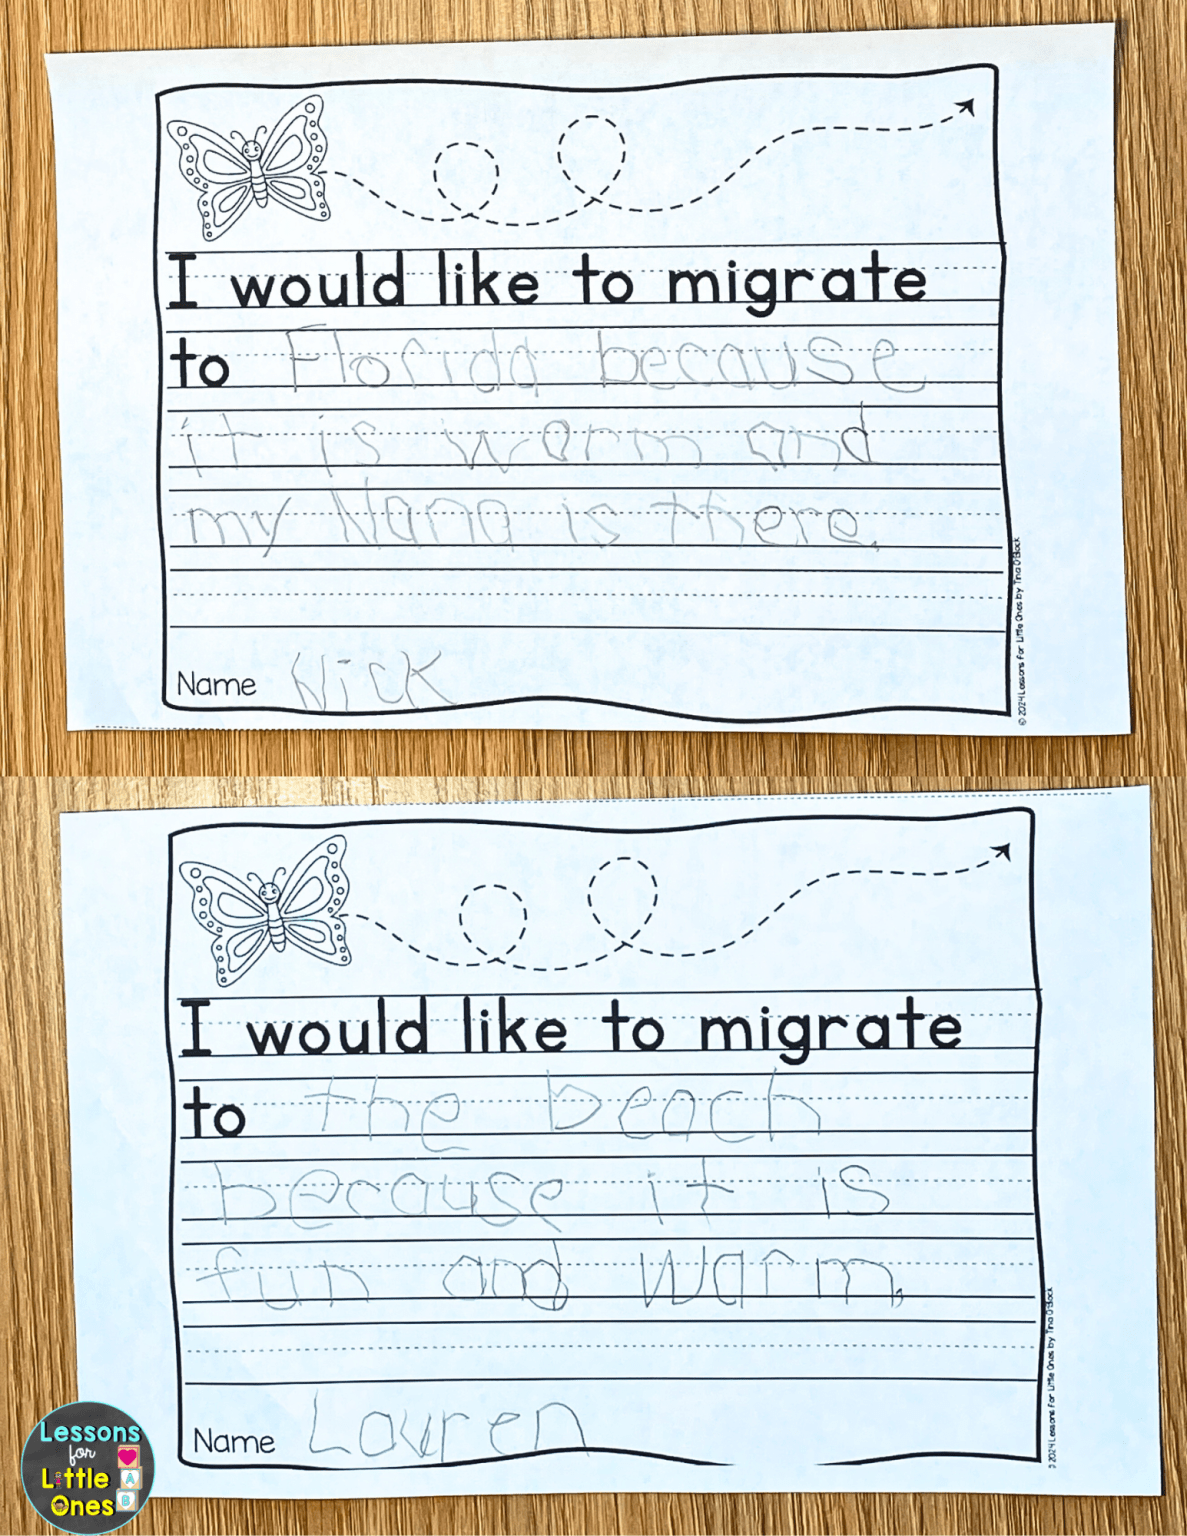 I would like to migrate
to Florida because
it is warm and
my Nana is there.
Name Nick
© 2024 Lessons for Little Ones by Tina O'Block
I would like to migrate
to the beach
because it is
fun and warm.
Name Lauren
© 2024 Lessons for Little Ones by Tina O'Block
Lessons
for
Little
Ones
A
B